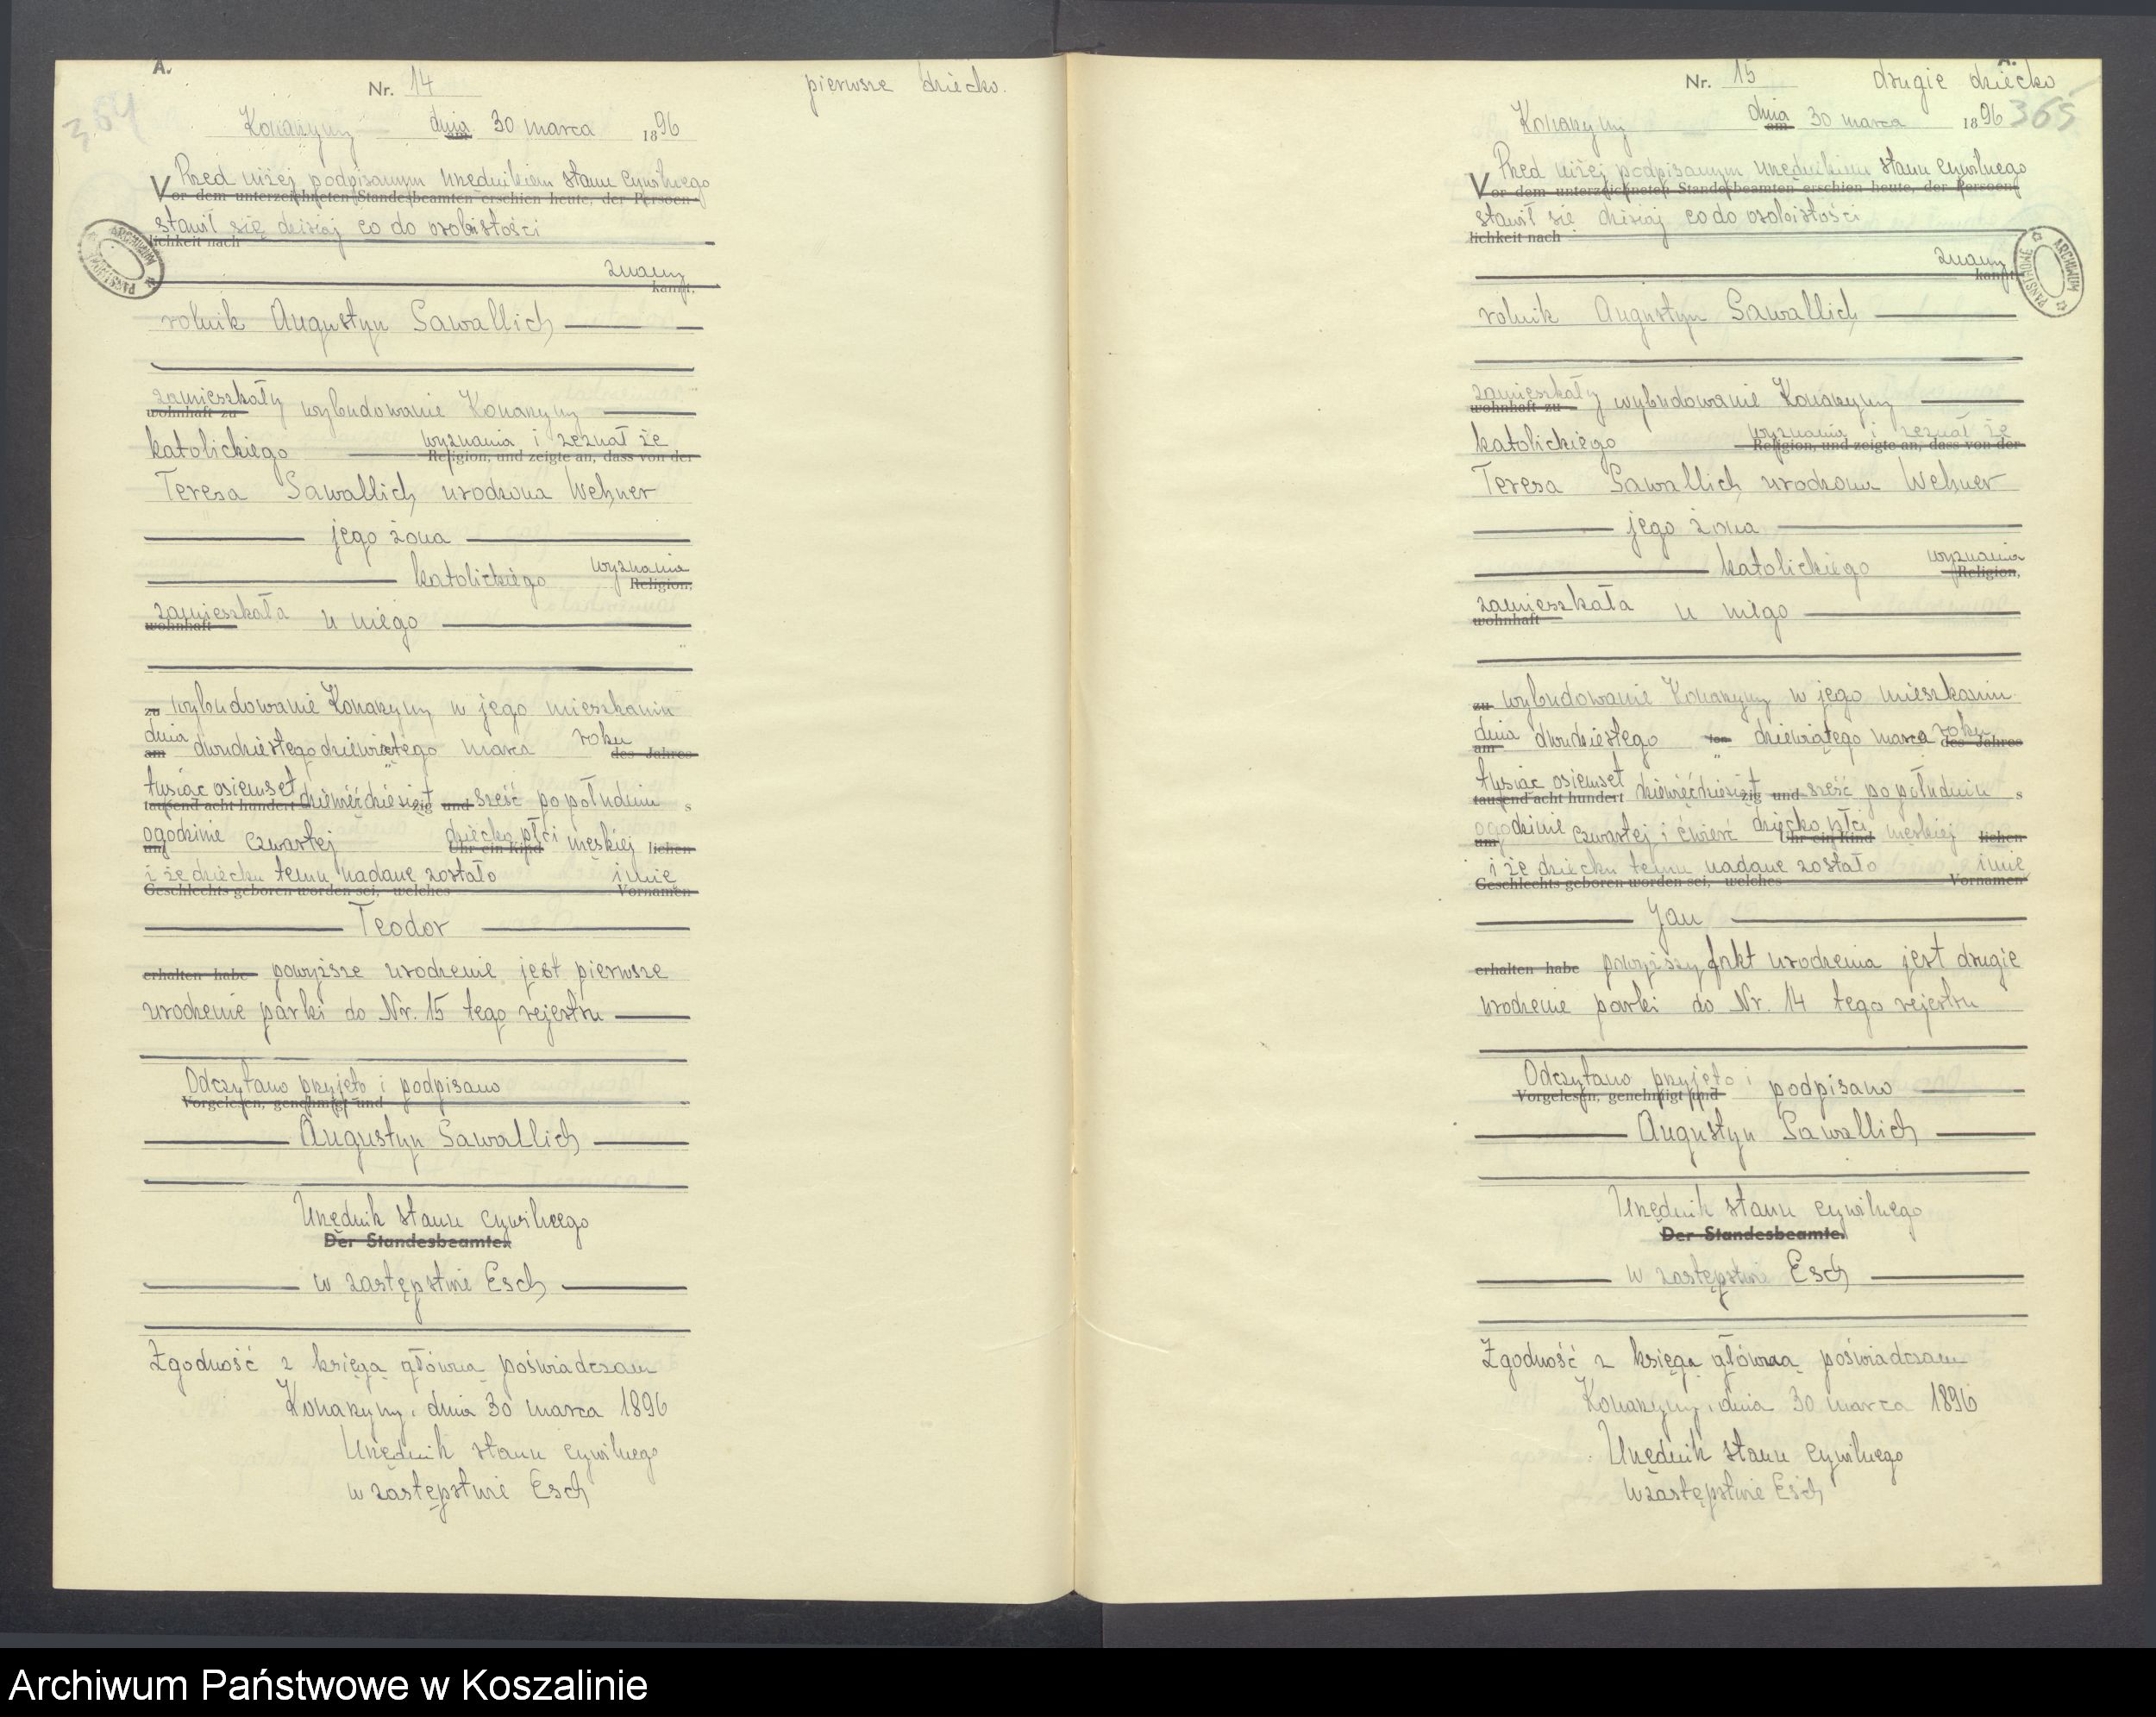 A.
Nr. 14
pierwsze dziecko.
364
Konarzyny dnia 30 marca 1896
am
Przed niżej podpisanym urzędnikiem stanu cywilnego
Vor dem unterzeichneten Standesbeamten erschien heute, der Persoen-
stawił się dzisiaj co do osobistości
lichkeit nach
znany
kannt,
rolnik Augustyn Sawallich
zamieszkały wybudowanie Konarzyny
wohnhaft zu
katolickiego wyznania i zeznał że
Religion, und zeigte an, dass von der
Teresa Sawallich urodzona Wehner
jego żona
katolickiego wyznania
Religion,
zamieszkała u niego
wohnhaft
zu wybudowanie Konarzyny w jego mieszkaniu
dnia dwudziestego dziewiątego marca roku
am des Jahres
tysiąc osiemset dziewięćdziesiąt sześć popołudniu
tausend acht hundert zig und s
o godzinie czwartej dziecko płci męskiej
um Uhr ein Kind lichen
i że dziecku temu nadane zostało imię
Geschlechts geboren worden sei, welches Vornamen
Teodor
erhalten habe powyższe urodzenie jest pierwsze
urodzenie parki do Nr. 15 tego rejestru
Odczytano przyjęto i podpisano
Vorgelesen, genehmigt und
Augustyn Sawallich
Urzędnik stanu cywilnego
Der Standesbeamte.
w zastępstwie Esch
Zgodność z księgą główną poświadczam
Konarzyny, dnia 30 marca 1896
Urzędnik stanu cywilnego
w zastępstwie Esch
ARCHIWUM PAŃSTWOWE
A.
Nr. 15
drugie dziecko
365
Konarzyny dnia 30 marca 1896
am
Przed niżej podpisanym urzędnikiem stanu cywilnego
Vor dem unterzeichneten Standesbeamten erschien heute, der Persoen-
stawił się dzisiaj co do osobistości
lichkeit nach
znany
kannt,
rolnik Augustyn Sawallich
zamieszkały wybudowanie Konarzyny
wohnhaft zu
katolickiego wyznania i zeznał że
Religion, und zeigte an, dass von der
Teresa Sawallich urodzona Wehner
jego żona
katolickiego wyznania
Religion,
zamieszkała u niego
wohnhaft
zu wybudowanie Konarzyny w jego mieszkaniu
dnia dwudziestego dziewiątego marca roku
am des Jahres
tysiąc osiemset dziewięćdziesiąt sześć popołudniu
tausend acht hundert zig und s
o godzinie czwartej i ćwierć dziecko płci męskiej
um Uhr ein Kind lichen
i że dziecku temu nadane zostało imię
Geschlechts geboren worden sei, welches Vornamen
Jan
erhalten habe powyższy fakt urodzenia jest drugie
urodzenie parki do Nr. 14 tego rejestru
Odczytano przyjęto i podpisano
Vorgelesen, genehmigt und
Augustyn Sawallich
Urzędnik stanu cywilnego
Der Standesbeamte.
w zastępstwie Esch
Zgodność z księgą główną poświadczam
Konarzyny, dnia 30 marca 1896
Urzędnik stanu cywilnego
w zastępstwie Esch
ARCHIWUM PAŃSTWOWE
Archiwum Państwowe w Koszalinie